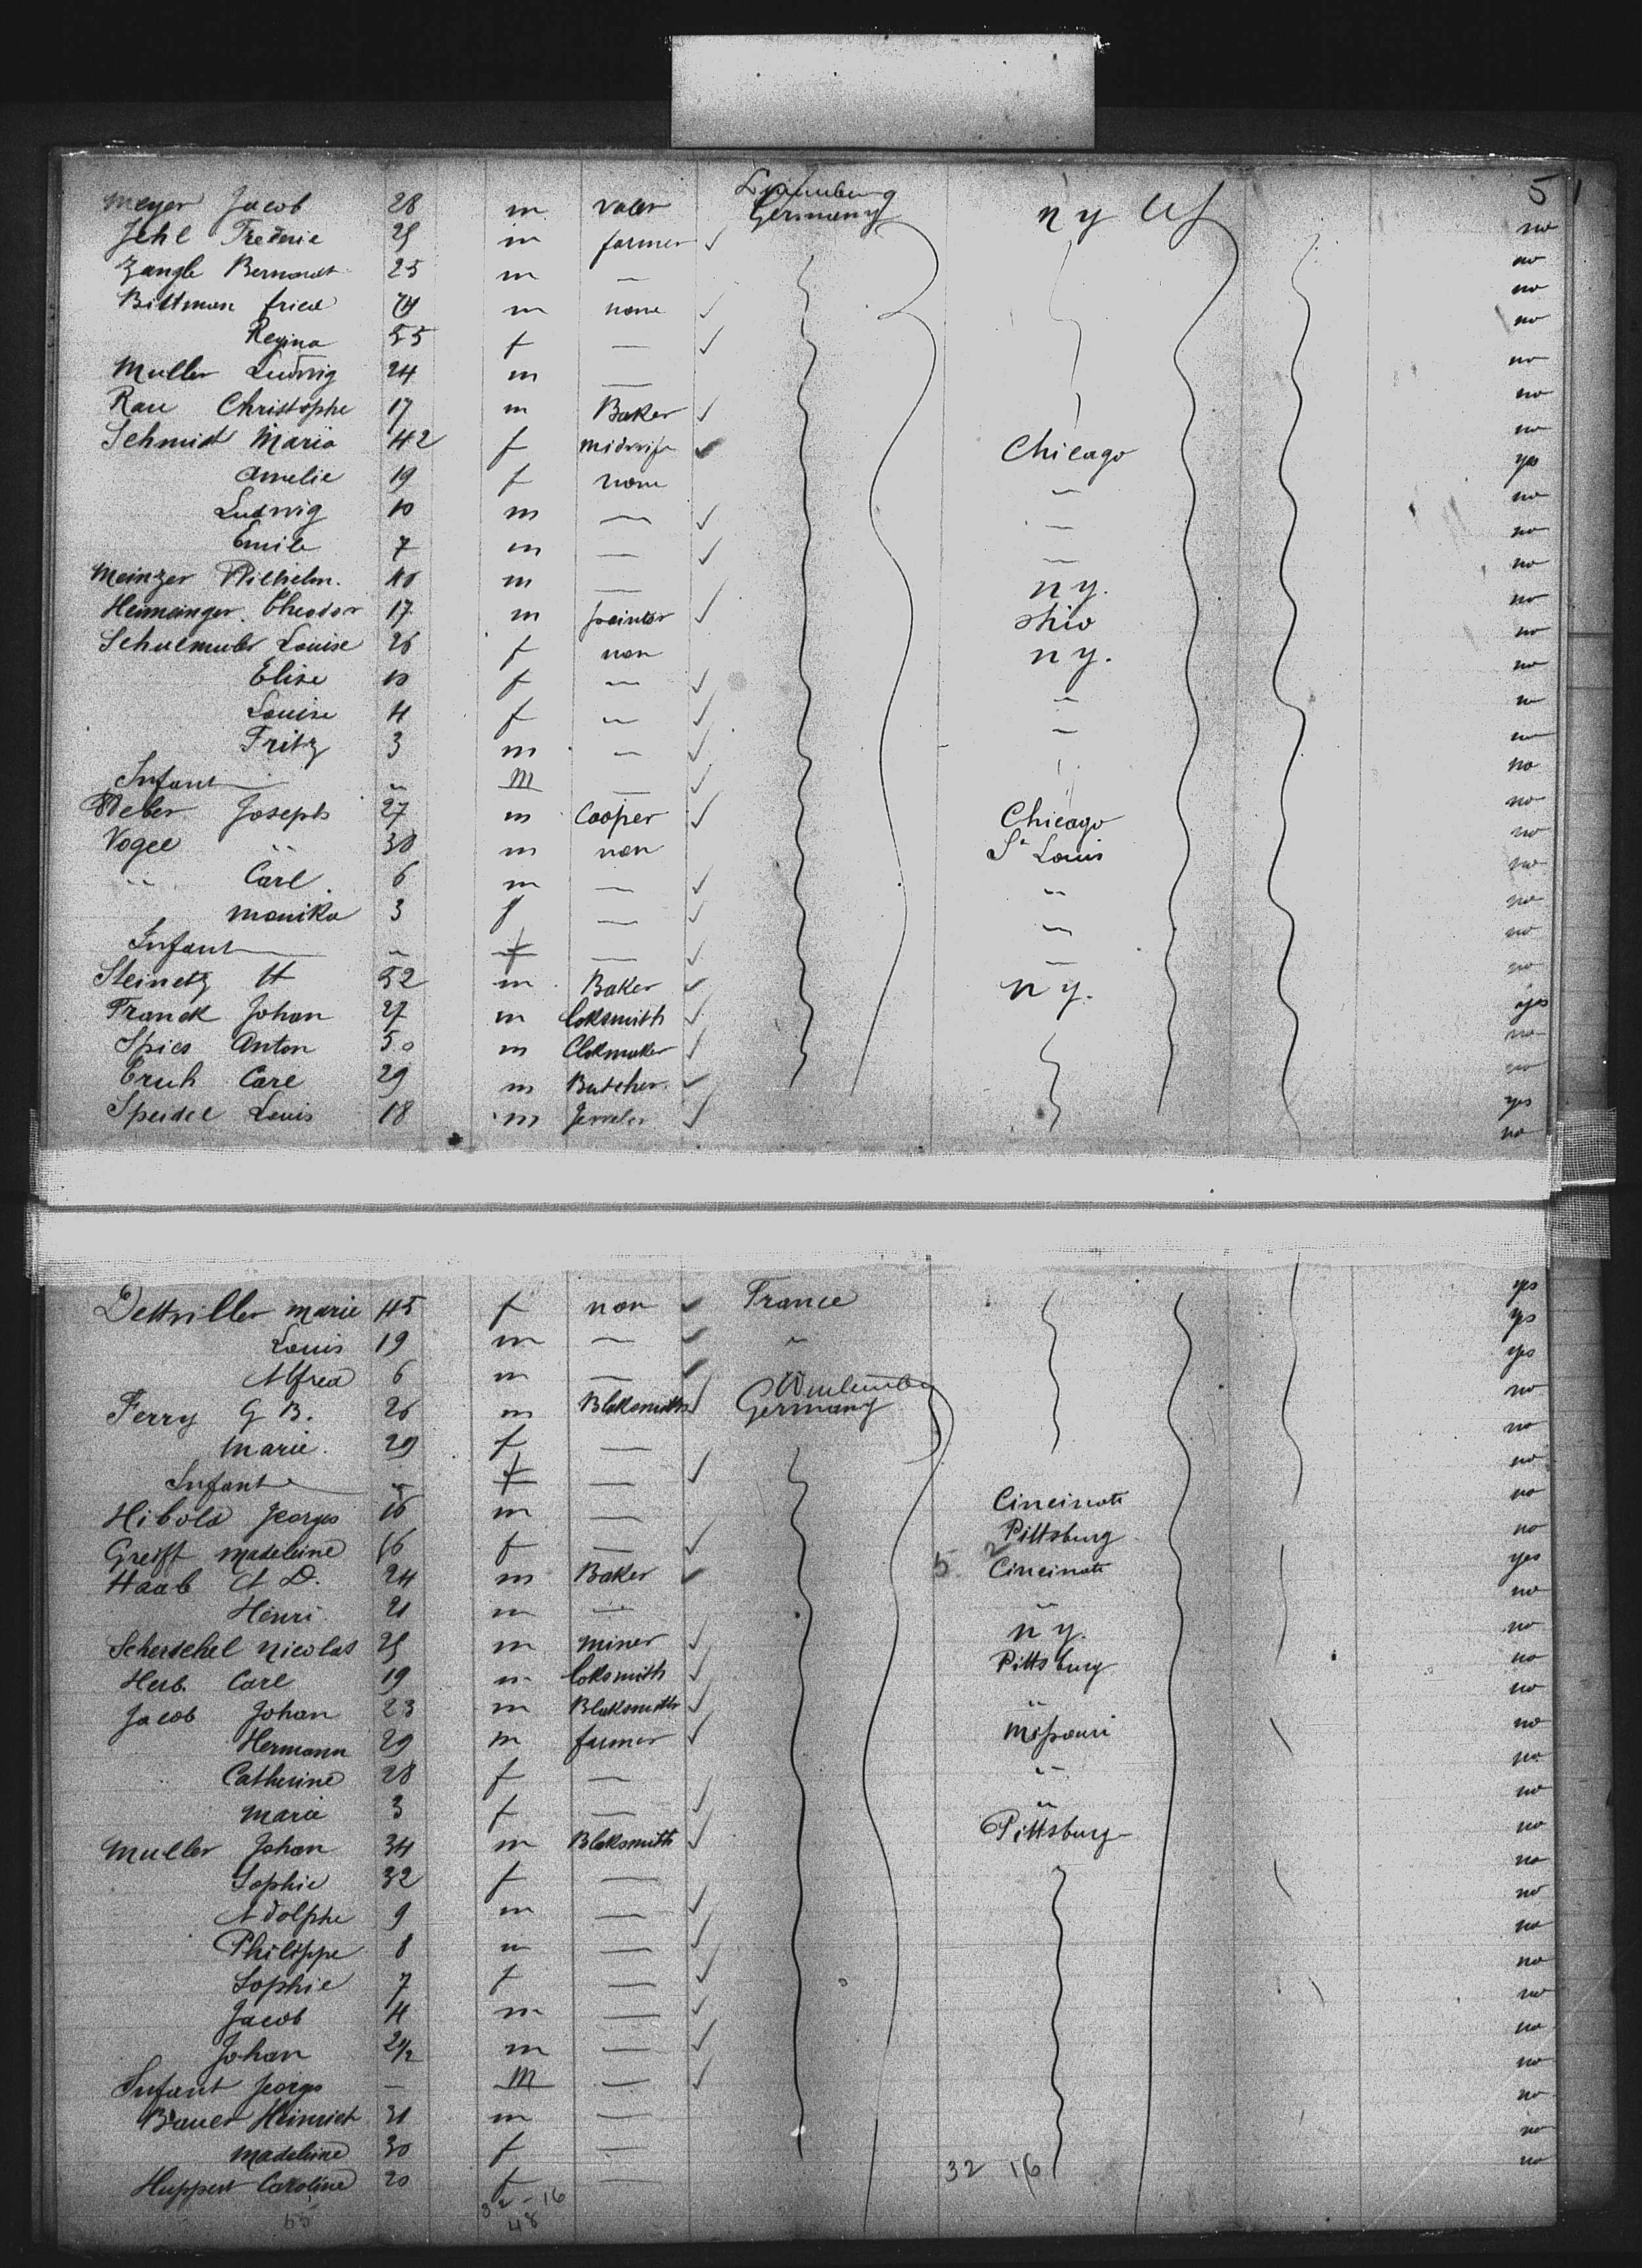 51
Luxemburg
Meyer Jacob 28 m valer Germany n y US no
Jehl Frederic 25 m farmer ✓ no
Zangle Bernardt 25 m — no
Bittman fried 74 m none ✓ no
Regina 55 f — ✓ no
Muller Ludwig 24 m — no
Rau Christophe 17 m Baker ✓ no
Schmidt Maria 42 f midwife ✓ Chicago yes
Amelie 19 f none " no
Ludwig 10 m — ✓ " no
Emile 7 m — ✓ " no
Meinzer Wilhelm. m — n y. no
Heimeinger. Theodor 17 m painter ✓ Ohio no
Schuemuler Louise 26 f non n y. no
Elise 10 f — ✓ " no
Louise 4 f — ✓ " no
Fritz 3 m — ✓ no
Infant — m — ✓ no
Weber Joseph 27 m Cooper ✓ Chicago no
Vogel 30 m non St Louis no
" Carl 6 m — ✓ " no
Monika 3 f — ✓ " no
Infant — f — ✓ " no
Steinetz H 52 m Baker ✓ n y. yes
Franck Johan 27 m loksmith ✓ no
Spies Anton 50 m Clokmaker ✓ no
Eruh Carl 29 m Butcher ✓ yes
Speidel Louis 18 m Jeweler ✓ no
Dettviller Marie 45 f non ✓ France yes
Louis 19 m — ✓ " yes
Alfred 6 m — ✓ yes
Ferry G B. 26 m Bloksmith ✓ Germany no
Marie 29 f — no
Infant — f — ✓ no
Hibold Georges 16 m — Cincinati no
Greift Madeleine 66 f — ✓ Pittsburg no
Haab A D. 24 m Baker ✓ Cincinati yes
Henri 21 m — " no
Scherschel Nicolas 25 m miner ✓ n y. no
Herb Carl 19 m loksmith ✓ Pittsburg no
Jacob Johan 23 m Bloksmith ✓ " no
Hermann 29 m farmer ✓ Missouri no
Catherine 28 f — " no
Marie 3 f — ✓ " no
Muller Johan 34 m Bloksmith ✓ Pittsburg no
Sophie 32 f — no
Adolphe 9 m — ✓ no
Philippe 8 m — ✓ no
Sophie 7 f — ✓ no
Jacob 4 m — ✓ no
Johan 2 1/2 m — ✓ no
Infant Georges — m — ✓ no
Bauer Heinrich 31 m — no
Madeleine 30 f — no
Huppert Caroline 20 f — 32 16
32 - 16
55 48